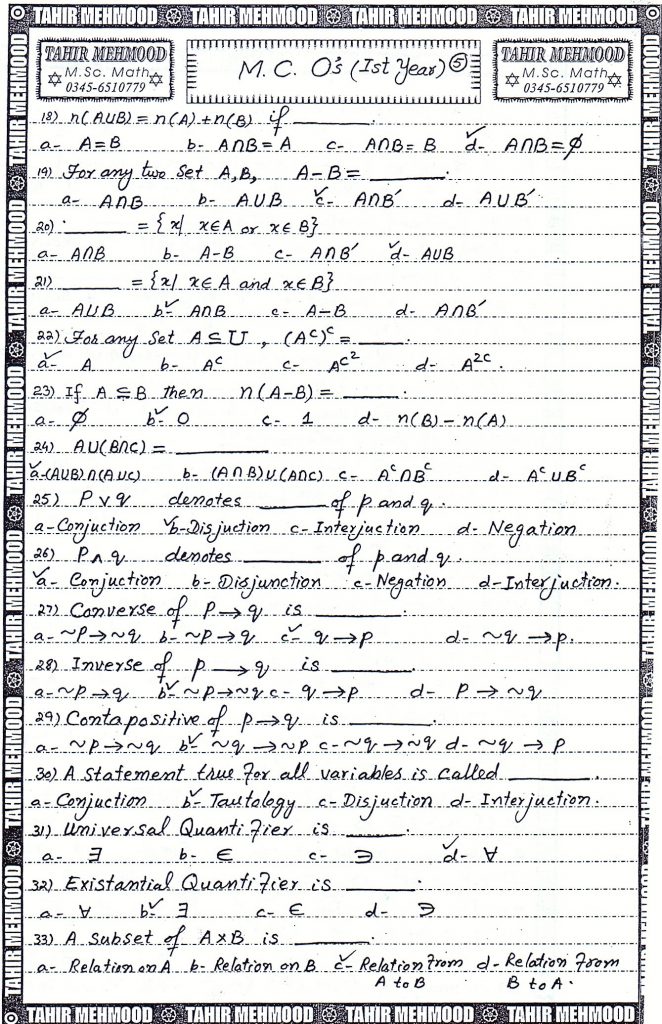 TAHIR MEHMOOD TAHIR MEHMOOD TAHIR MEHMOOD TAHIR MEHMOOD
TAHIR MEHMOOD
M.Sc. Math
0345-6510779
M. C. O's (Ist Year) 5
TAHIR MEHMOOD
M.Sc. Math
0345-6510779
18) n(A∪B) = n(A) + n(B) if ______.
a- A=B b- A∩B = A c- A∩B = B ✓d- A∩B = ∅
19) For any two Set A,B, A-B = ______.
a- A∩B b- A∪B ✓c- A∩B′ d- A∪B′
20) ______ = {x| x∈A or x∈B}
a- A∩B b- A-B c- A∩B′ ✓d- A∪B
21) ______ = {x| x∈A and x∈B}
a- A∪B ✓b- A∩B c- A-B d- A∩B′
22) For any Set A⊆U, (Aᶜ)ᶜ = ______.
✓a- A b- Aᶜ c- Aᶜ² d- A²ᶜ.
23) If A⊆B then n(A-B) = ______.
a- ∅ ✓b- 0 c- 1 d- n(B) - n(A)
24) A∪(B∩C) = ______
✓a-(A∪B)∩(A∪C) b- (A∩B)∪(A∩C) c- Aᶜ∩Bᶜ d- Aᶜ∪Bᶜ
25) P∨q denotes ______ of p and q.
a- Conjuction ✓b- Disjuction c- Interjuction d- Negation
26) P∧q denotes ______ of p and q.
✓a- Conjuction b- Disjunction c- Negation d- Interjuction.
27) Converse of P→q is ______.
a- ~P→~q b- ~P→q ✓c- q→p d- ~q→p.
28) Inverse of p→q is ______.
a- ~p→q ✓b- ~p→~q c- q→p d- P→~q
29) Contapositive of p→q is ______.
a- ~P→~q ✓b- ~q→~p c- ~q→~q d- ~q→P
30) A statement true for all variables is called ______.
a- Conjuction ✓b- Tautology c- Disjuction d- Interjuction.
31) Universal Quantifier is ______.
a- ∃ b- ∈ c- ∋ ✓d- ∀
32) Existantial Quantifier is ______.
a- ∀ ✓b- ∃ c- ∈ d- ∋
33) A subset of A×B is ______.
a- Relation on A b- Relation on B ✓c- Relation from A to B d- Relation from B to A.
TAHIR MEHMOOD TAHIR MEHMOOD TAHIR MEHMOOD TAHIR MEHMOOD
TAHIR MEHMOOD TAHIR MEHMOOD TAHIR MEHMOOD TAHIR MEHMOOD TAHIR MEHMOOD TAHIR MEHMOOD
TAHIR MEHMOOD TAHIR MEHMOOD TAHIR MEHMOOD TAHIR MEHMOOD TAHIR MEHMOOD TAHIR MEHMOOD